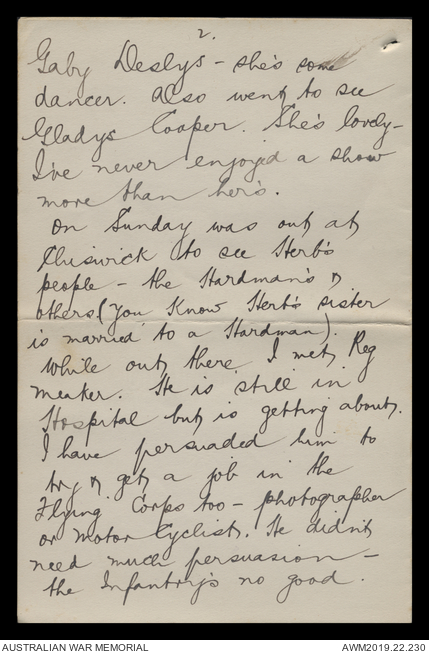 2.
Gaby Deslys - she's some
dancer. Also went to see
Gladys Cooper. She's lovely -
I've never enjoyed a show
more than her's.
On Sunday was out at
Chiswick to see Herb's
people - the Hardman's &
others (you know Herb's sister
is married to a Hardman).
While out there I met Reg
Meaker. He is still in
Hospital but is getting about.
I have persuaded him to
try & get a job in the
Flying Corps too - photographer
or Motor Cyclist. He didn't
need much persuasion -
the Infantry's no good.
AUSTRALIAN WAR MEMORIAL
AWM2019.22.230